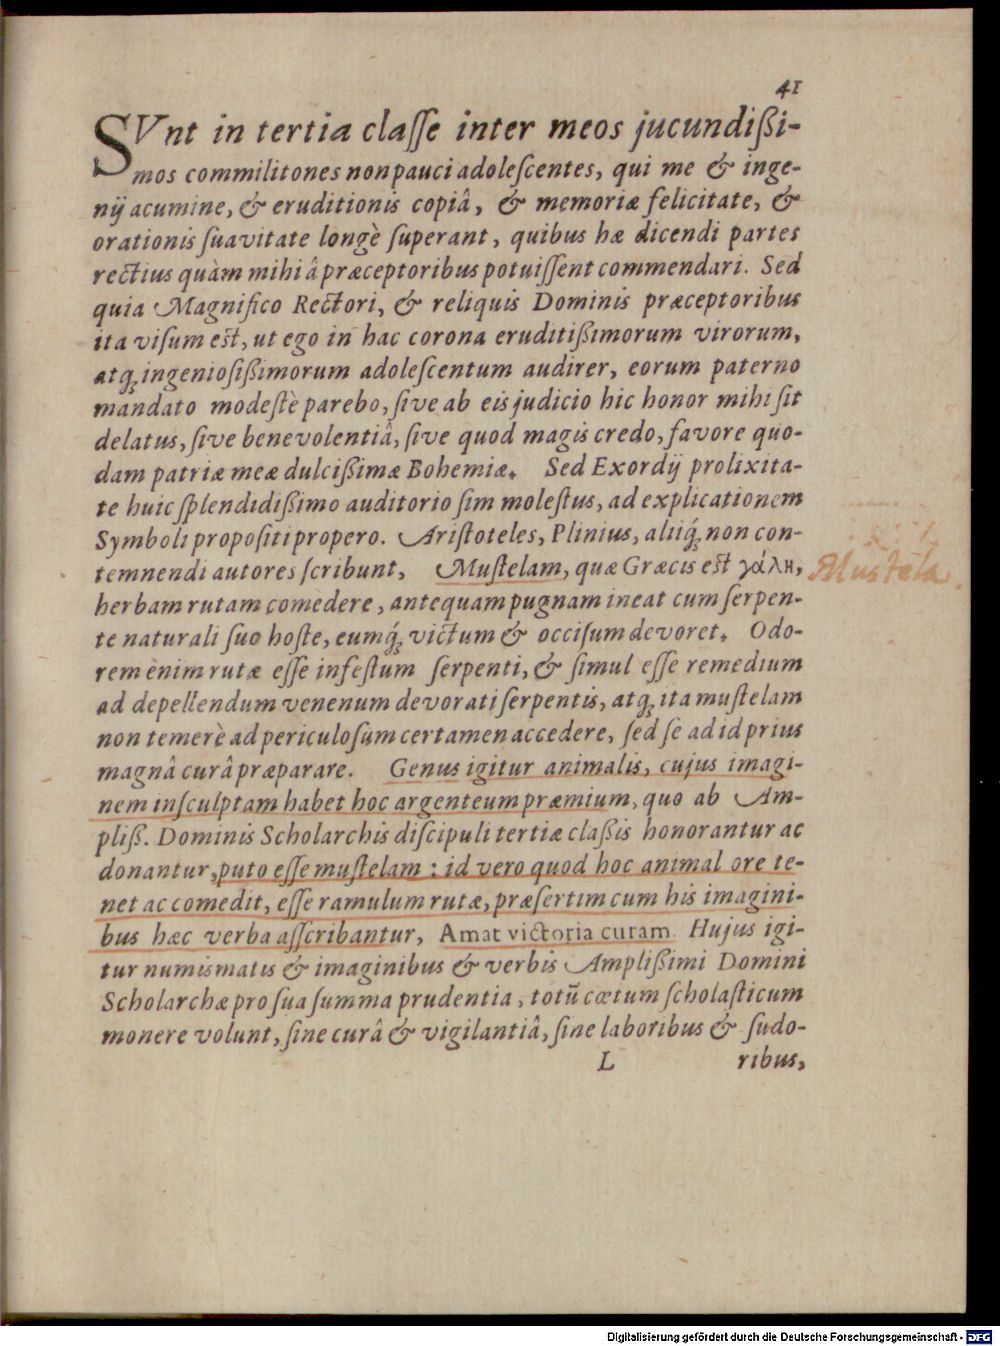 41
SVnt in tertia claſſe inter meos jucundißi-
mos commilitones non pauci adoleſcentes, qui me & inge-
nij acumine, & eruditionis copiâ, & memoriæ felicitate, &
orationis ſuavitate longè ſuperant, quibus hæ dicendi partes
rectius quàm mihi â præceptoribus potuiſſent commendari. Sed
quia Magnifico Rectori, & reliquis Dominis præceptoribus
ita viſum est, ut ego in hac corona eruditißimorum virorum,
atq́; ingenioſißimorum adoleſcentum audirer, eorum paterno
mandato modeſtè parebo, ſive ab eis judicio hic honor mihi ſit
delatus, ſive benevolentiâ, ſive quod magis credo, favore quo-
dam patriæ meæ dulcißimæ Bohemiæ. Sed Exordij prolixita-
te huic ſplendidißimo auditorio ſim moleſtus, ad explicationem
Symboli propoſiti propero. Ariſtoteles, Plinius, aliiq́; non con-
temnendi autores ſcribunt, Muſtelam, quæ Græcis est γάλη,
Mustela
herbam rutam comedere, antequam pugnam ineat cum ſerpen-
te naturali ſuo hoſte, eumq́; victum & occiſum devoret. Odo-
rem enim rutæ eſſe infeſtum ſerpenti, & ſimul eſſe remedium
ad depellendum venenum devorati ſerpentis, atq́; ita muſtelam
non temerè ad periculoſum certamen accedere, ſed ſe ad id prius
magnâ curâ præparare. Genus igitur animalis, cujus imagi-
nem inſculptam habet hoc argenteum præmium, quo ab Am-
pliß. Dominis Scholarchis diſcipuli tertiæ claßis honorantur ac
donantur, puto eſſe muſtelam : id vero quod hoc animal ore te-
net ac comedit, eſſe ramulum rutæ, præſertim cum his imagini-
bus hæc verba aſſcribantur, Amat victoria curam. Hujus igi-
tur numismatis & imaginibus & verbis Amplißimi Domini
Scholarchæ pro ſua ſumma prudentia, totū cœtum ſcholaſticum
monere volunt, ſine curâ & vigilantiâ, ſine laboribus & ſudo-
L ribus,
Digitalisierung gefördert durch die Deutsche Forschungsgemeinschaft - DFG